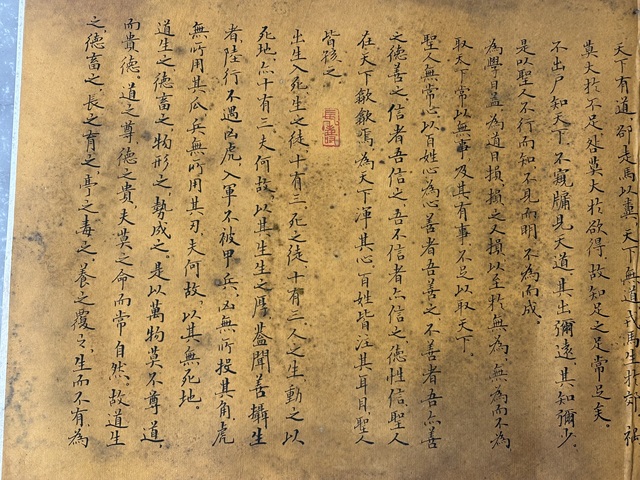 天下有道，卻走馬以糞，天下無道，戎馬生於郊，禍
莫大於不足，咎莫大於欲得，故知足之足常足矣。
不出戶知天下，不窺牖見天道，其出彌遠，其知彌少，
是以聖人不行而知，不見而明，不為而成。
為學日益，為道日損，損之人損以至於無為，無為而不為，
取天下常以無事，及其有事，不足以取天下。
聖人無常心，以百姓心為心，善者吾善之，不善者吾亦善
之，德善之，信者吾信之，吾不信者亦信之，德性信，聖人
在天下歙歙焉，為天下渾其心，百姓皆注其耳目，聖人
皆孩之。
出生入死，生之徒十有三，死之徒十有三，人之生動之以
死地，亦十有三，夫何故，以其生生之厚，蓋聞善攝生
者，陸行不遇凶虎，入軍不被甲兵，凶無所投其角，虎
無所用其爪，兵無所用其刃，夫何故，以其無死地。
道生之，德畜之，物形之，勢成之，是以萬物莫不尊道，
而貴德，道之尊，德之貴，夫莫之命而常自然，故道生
之，德畜之，長之，育之，亭之，毒之，養之，覆之，生而不有，為